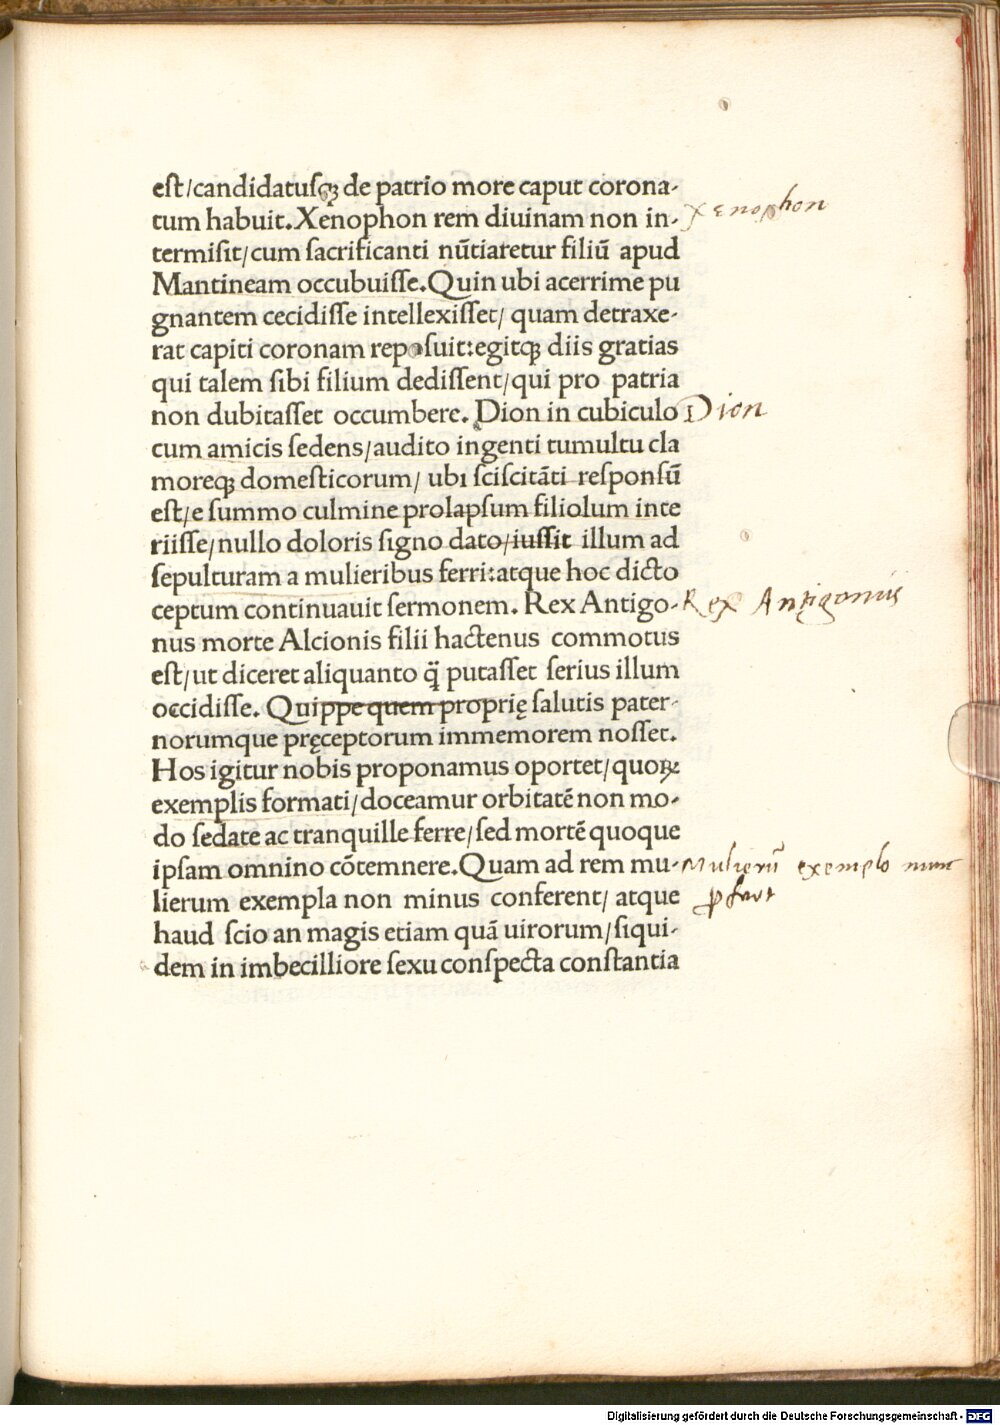 eſt/candidatuſqꝫ de patrio more caput corona-
tum habuit.Xenophon rem diuinam non in-
termiſit/cum ſacrificanti nūtiaretur filiū apud
Mantineam occubuiſſe.Quin ubi acerrime pu
gnantem cecidiſſe intellexiſſet/ quam detraxe-
rat capiti coronam repoſuit:egitqꝫ diis gratias
qui talem ſibi filium dediſſent/qui pro patria
non dubitaſſet occumbere. Dion in cubiculo
cum amicis ſedens/audito ingenti tumultu cla
moreqꝫ domeſticorum/ ubi ſciſcitāti reſponſū
eſt/e ſummo culmine prolapſum filiolum inte
riiſſe/nullo doloris ſigno dato/iuſſit illum ad
ſepulturam a mulieribus ferri:atque hoc dicto
ceptum continuauit ſermonem. Rex Antigo-
nus morte Alcionis filii hactenus commotus
eſt/ut diceret aliquanto q̄ putaſſet ſerius illum
occidiſſe. Quippe quem proprię ſalutis pater-
norumque pręceptorum immemorem noſſet.
Hos igitur nobis proponamus oportet/quoꝝ
exemplis formati/doceamur orbitatē non mo-
do ſedate ac tranquille ferre/ſed mortē quoque
ipſam omnino cōtemnere.Quam ad rem mu-
lierum exempla non minus conferent/ atque
haud ſcio an magis etiam quā uirorum/ſiqui-
dem in imbecilliore ſexu conſpecta conſtantia
Xenophon
Dion
Rex Antigonus
Mulierū exemplo
Digitalisierung gefördert durch die Deutsche Forschungsgemeinschaft - DFG